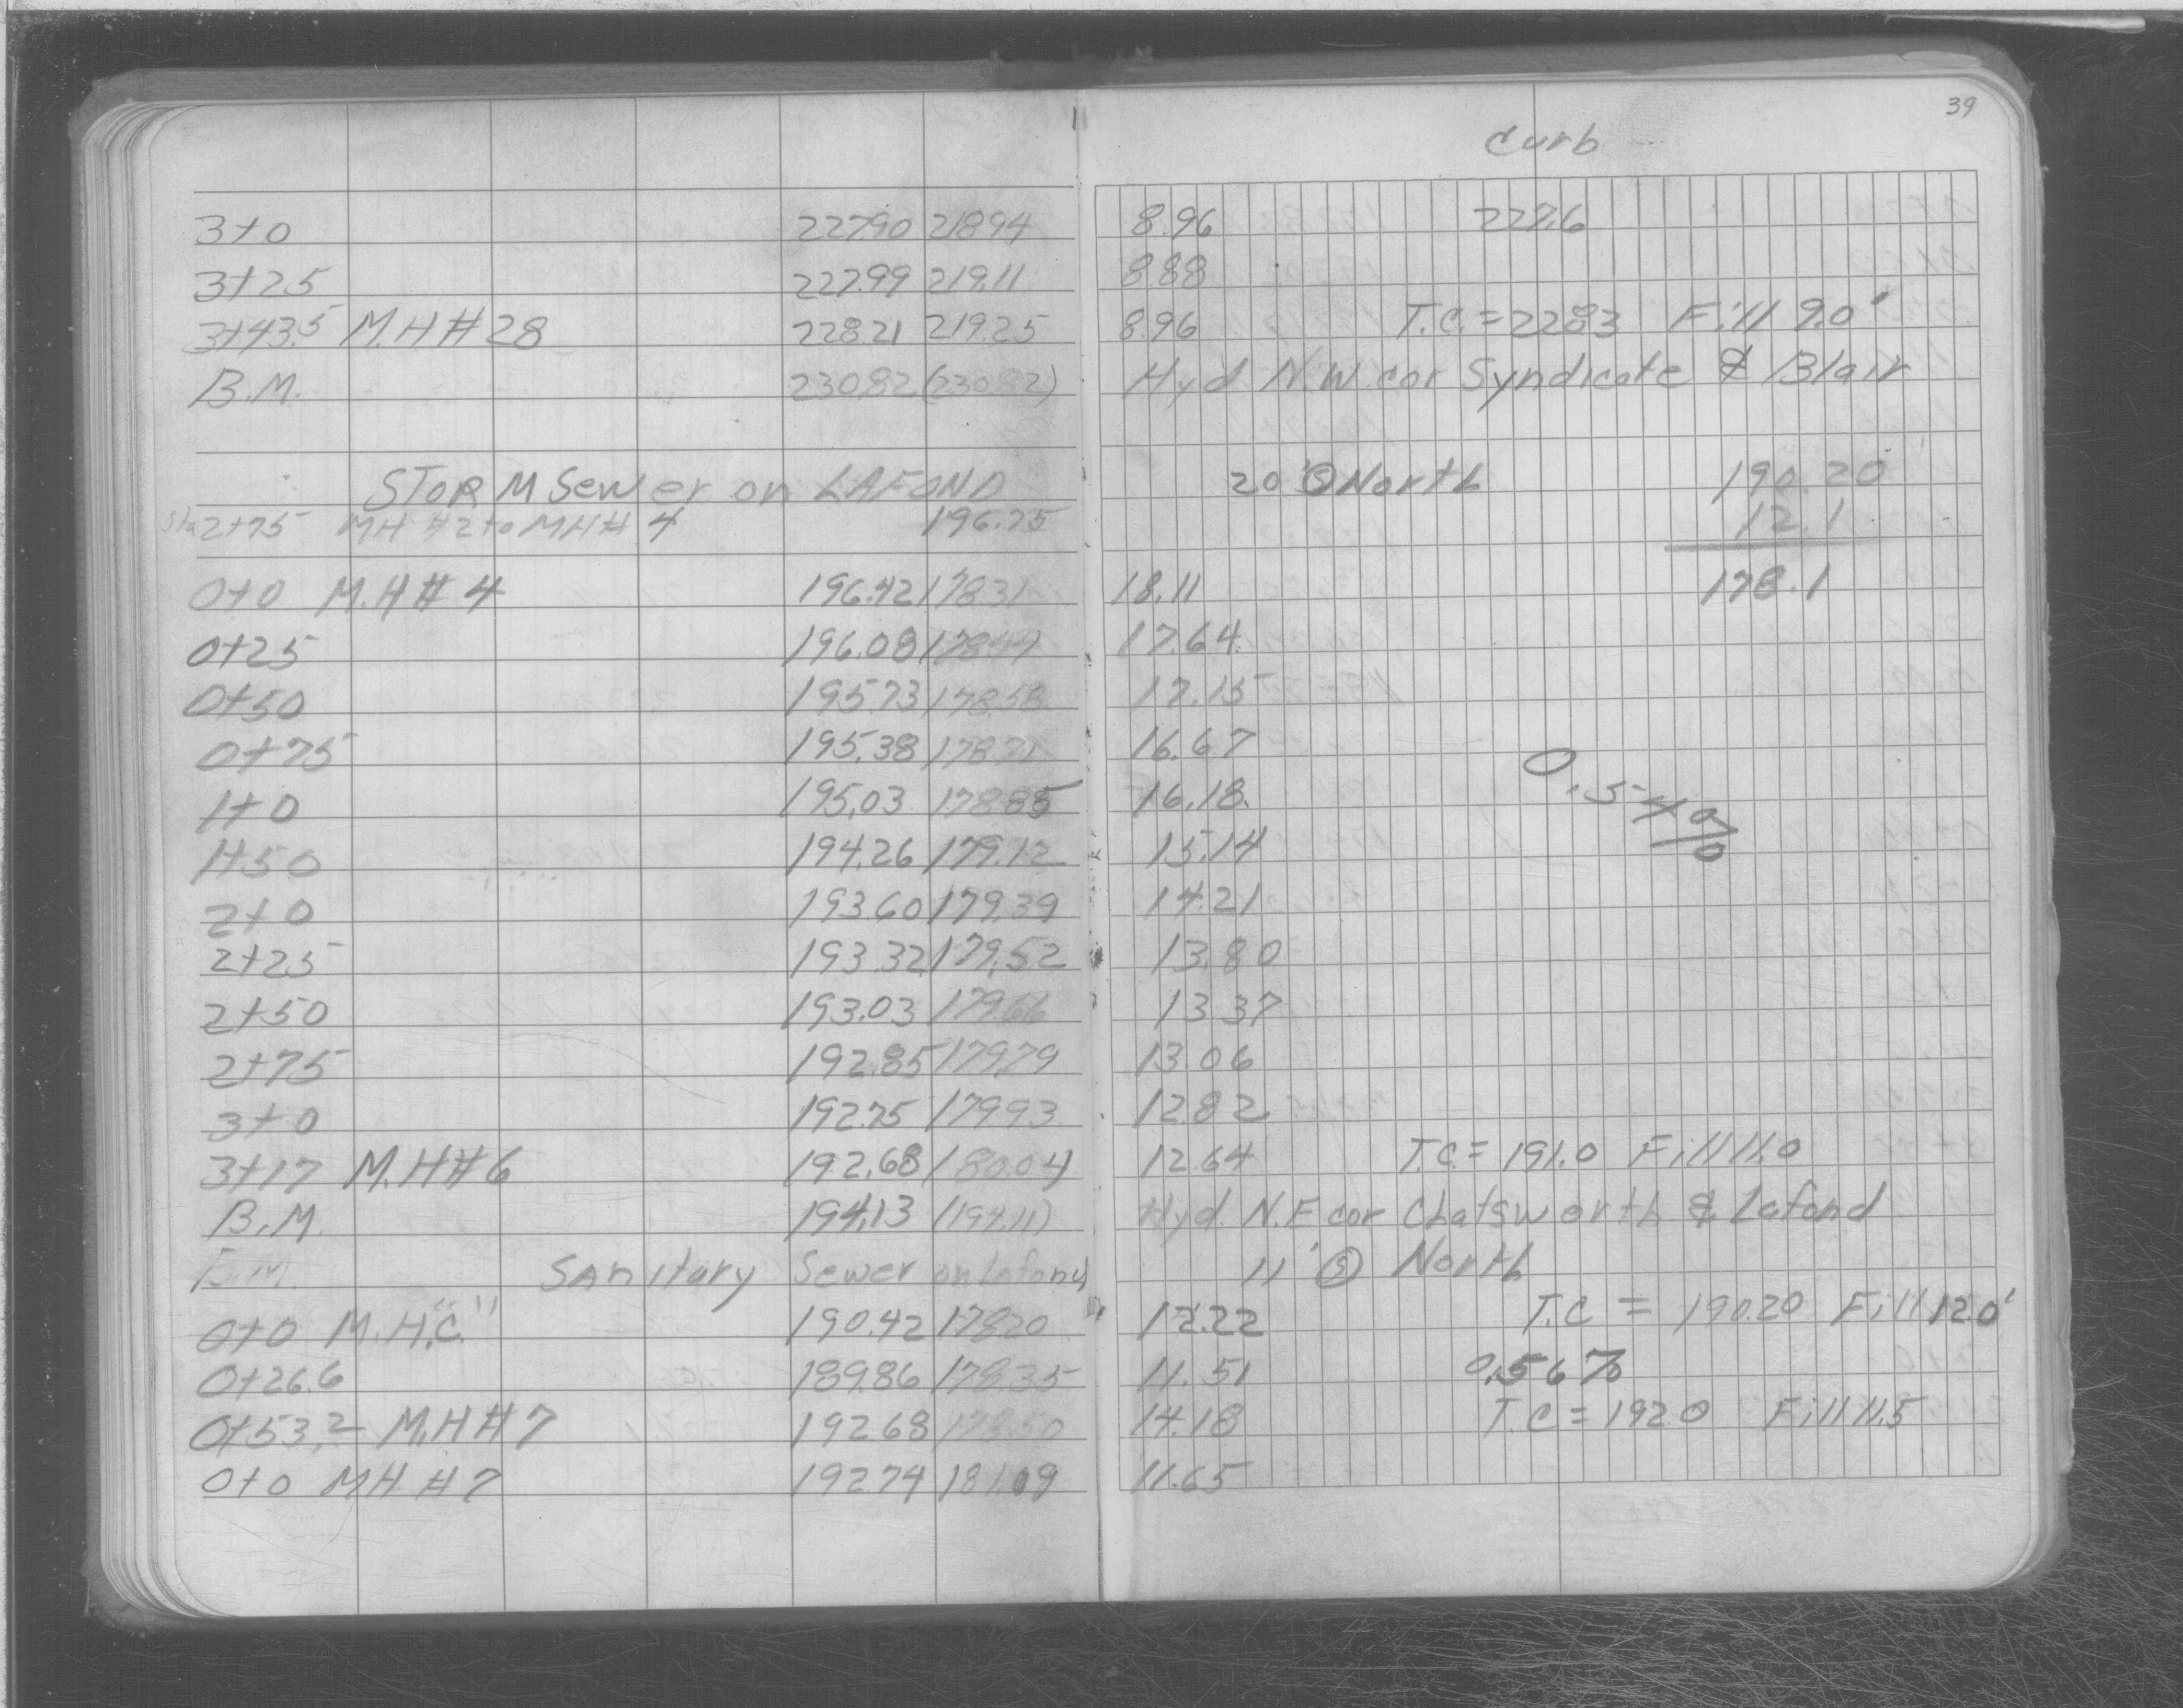 39
Curb
3+0 227.90 218.94 8.96 227.6
3+25 227.99 219.11 8.88
3+43.5 M.H#28 228.21 219.25 8.96 T.C.=228.3 Fill 9.0'
B.M. 230.82 (230.82) Hyd N.W. cor Syndicate & Blair
STORM Sewer on LAFOND 20' Ⓢ North 190.20
Sta 2+75 MH #2 to MH# 4 196.75 12.1
0+0 M.H# 4 196.42 178.31 18.11 178.1
0+25 196.08 178.44 17.64
0+50 195.73 178.58 17.15
0+75 195.38 178.71 16.67
1+0 195.03 178.85 16.18
0.54%
1+50 194.26 179.12 15.14
2+0 193.60 179.39 14.21
2+25 193.32 179.52 13.80
2+50 193.03 179.66 13.37
2+75 192.85 179.79 13.06
3+0 192.75 179.93 12.82
3+17 M.H#6 192.68 180.04 12.64 T.C.= 191.0 Fill 11.0
B.M. 194.13 (194.11) Hyd. N.E cor Chatsworth & Lafond
B.M. Sanitary Sewer on Lafond 11' Ⓢ North
0+0 M.H."C" 190.42 178.20 12.22 T.C = 190.20 Fill 12.0'
0+26.6 189.86 178.35 11.51 0.56%
0+53.2 M.H#7 192.68 178.50 14.18 T.C=192.0 Fill 11.5
0+0 MH #7 192.74 181.09 11.65